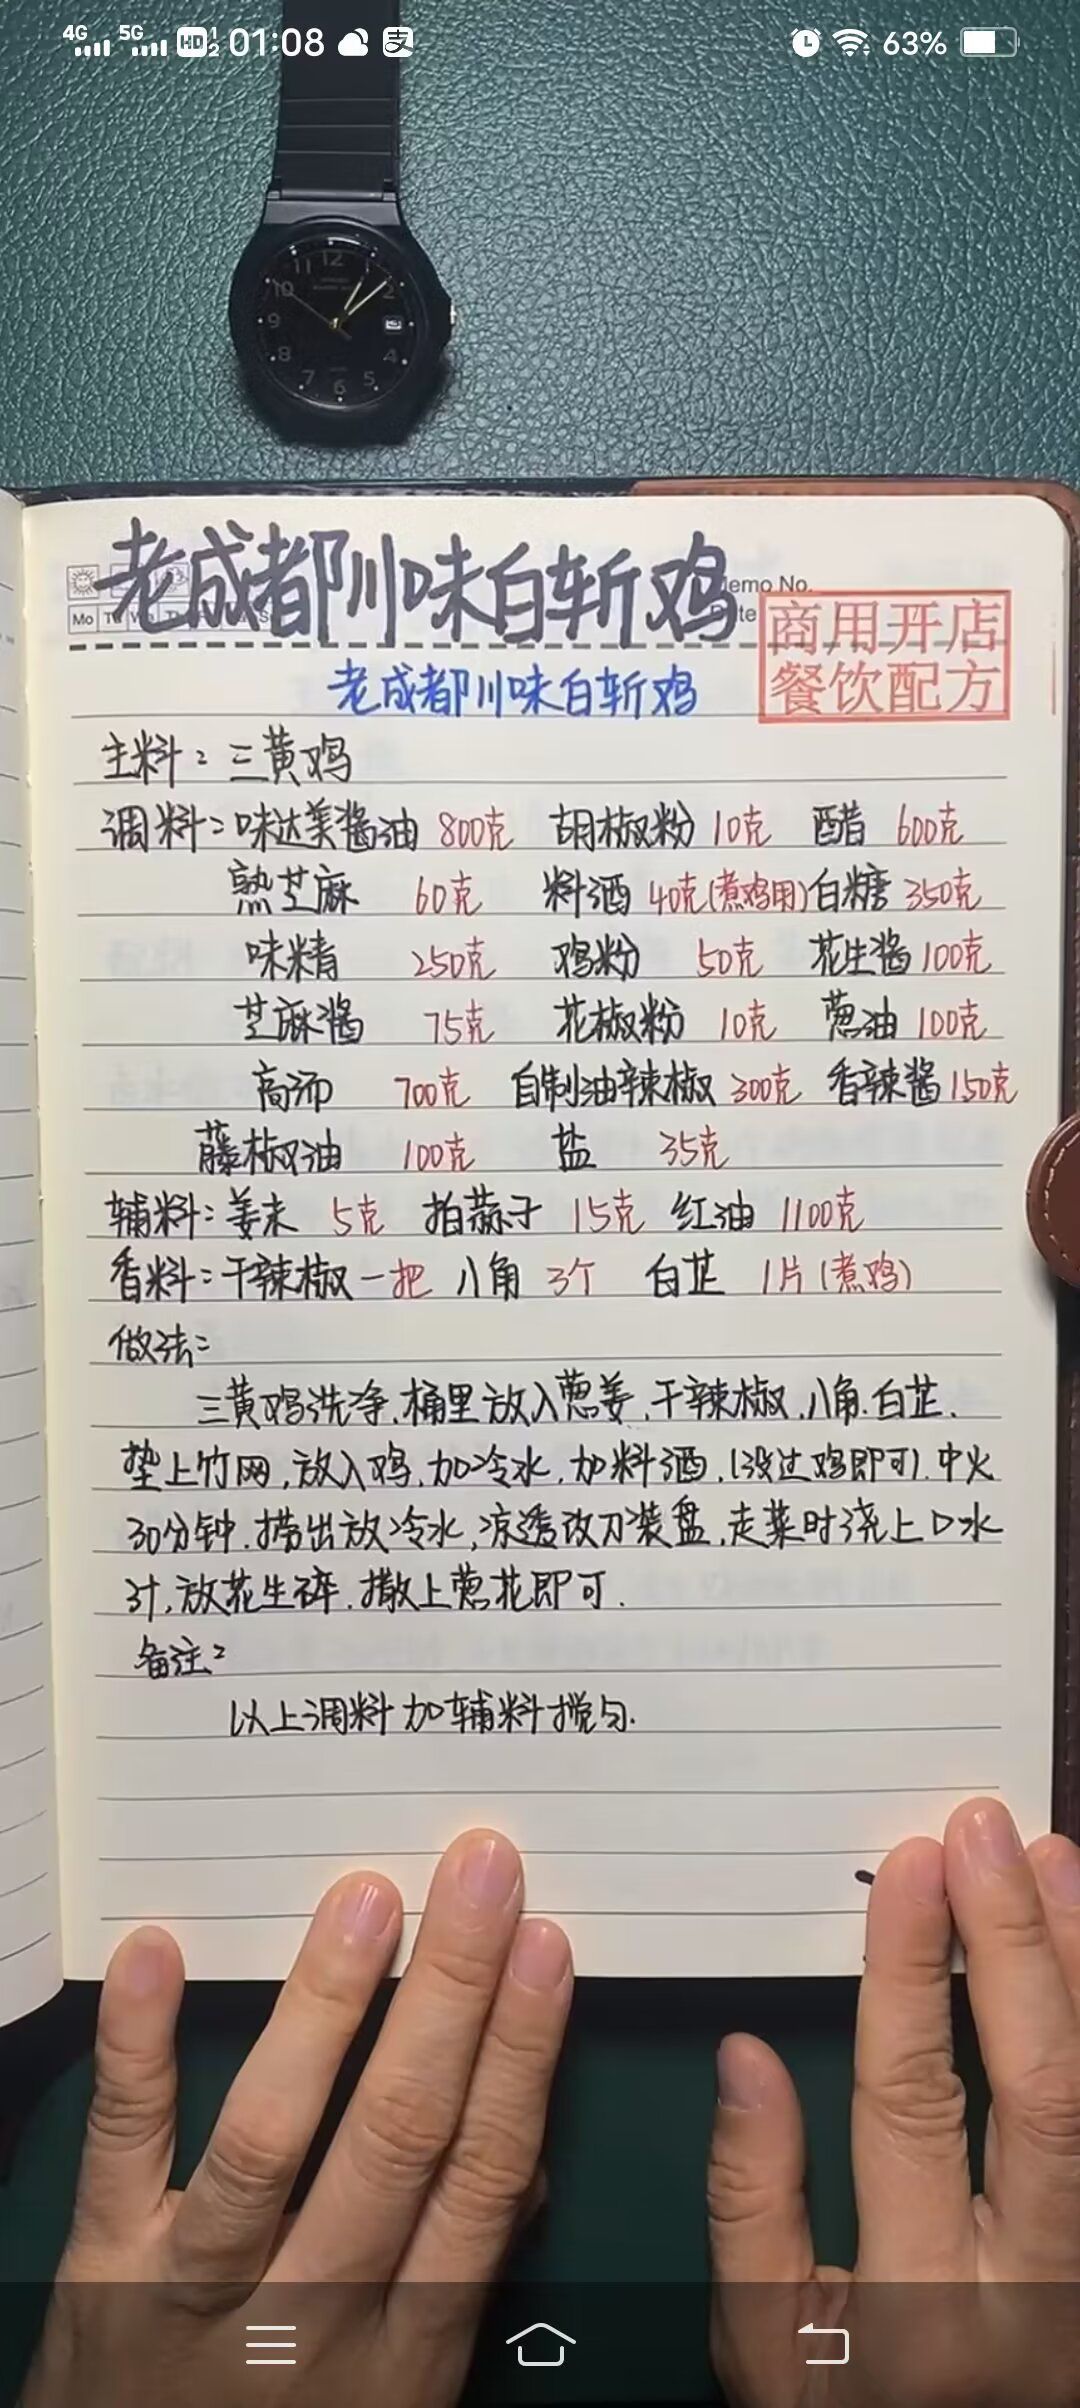 4G 5G HD 1 2 01:08 支 63%
12
11 1
10 2
9
8 4
7 6 5
老成都川味白斩鸡
Memo No.
Mo Tu We Th
商用开店
餐饮配方
老成都川味白斩鸡
主料:三黄鸡
调料:味达美酱油 800克 胡椒粉 10克 醋 600克
熟芝麻 60克 料酒 40克(煮鸡用) 白糖 350克
味精 250克 鸡粉 50克 花生酱 100克
芝麻酱 75克 花椒粉 10克 葱油 100克
高汤 700克 自制油辣椒 300克 香辣酱 150克
藤椒油 100克 盐 35克
辅料:姜末 5克 拍蒜子 15克 红油 1100克
香料:干辣椒一把 八角 3个 白芷 1片(煮鸡)
做法:
三黄鸡洗净,桶里放入葱姜,干辣椒,八角.白芷.
垫上竹网,放入鸡,加冷水,加料酒,(没过鸡即可).中火
30分钟.捞出放冷水,凉透改刀装盘,走菜时浇上口水
汁,放花生碎.撒上葱花即可.
备注:
以上调料加辅料搅匀.